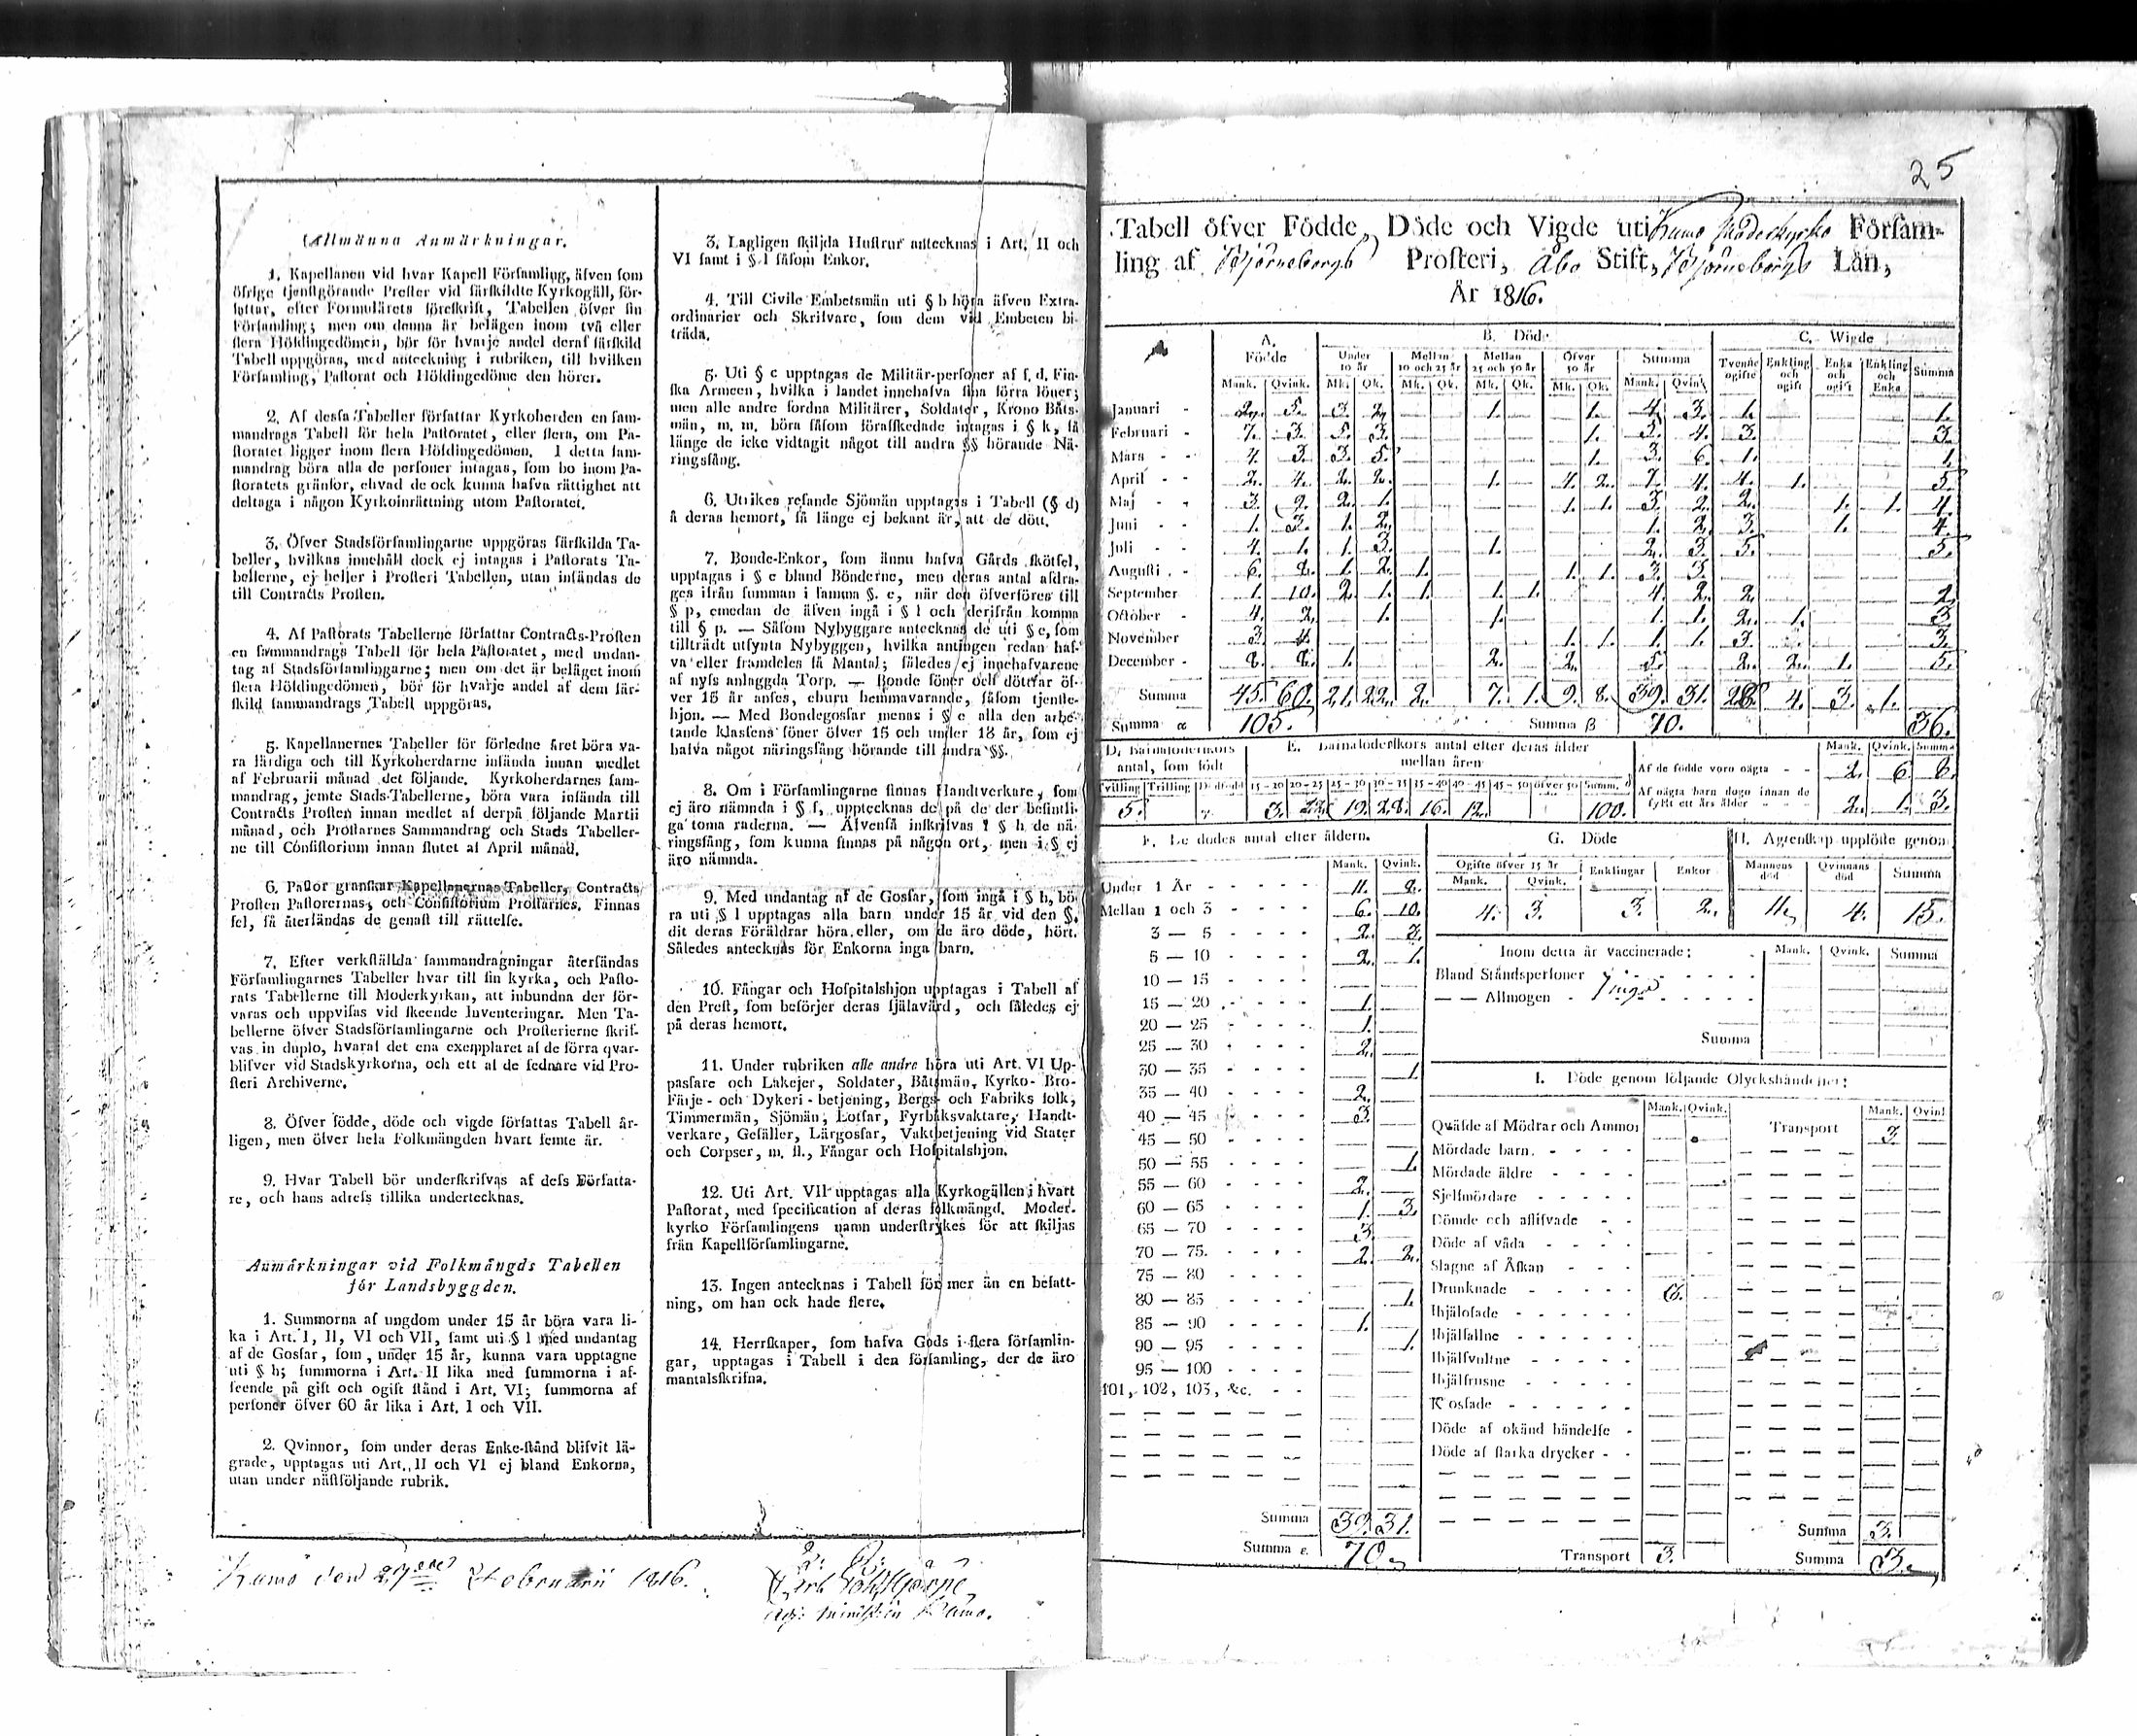 Allmänna Anmärkningar.
1. Kapellanen vid hvar Kapell Församling, äfven som
öfrige tjenstgörande Prester vid särskildte Kyrkogäll, för-
fattar, efter Formulärets föreskrift, Tabellen öfver sin
Församling; men om denna är belägen inom två eller
flera Höfdingedömen, bör för hvarje andel deraf särskild
Tabell uppgöras, med anteckning i rubriken, till hvilken
Församling, Pastorat och Höfdingedöme den hörer.
2. Af dessa Tabeller författar Kyrkoherden en sam-
mandrags Tabell för hela Pastoratet, eller flera, om Pa-
storatet ligger inom flera Höfdingedömen. I detta sam-
mandrag böra alla de personer intagas, som bo inom Pa-
storatets gränsor, ehvad de ock kunna hafva rättighet att
deltaga i någon Kyrkoinrättning utom Pastoratet.
3. Öfver Stadsförsamlingarne uppgöras särskilda Ta-
beller, hvilkas innehåll dock ej intagas i Pastorats Ta-
bellerne, ej heller i Prosteri Tabellen, utan insändas de
till Contracts Prosten.
4. Af Pastorats Tabellerne författar Contracts-Prosten
en sammandrags Tabell för hela Pastoratet, med undan-
tag af Stadsförsamlingarne; men om det är beläget inom
flera Höfdingedömen, bör för hvarje andel af dem sär-
skild sammandrags Tabell uppgöras.
5. Kapellanernes Tabeller för förledne året böra va-
ra färdiga och till Kyrkoherdarne insända innan medlet
af Februarii månad det följande. Kyrkoherdarnes sam-
mandrag, jemte Stads-Tabellerne, böra vara insända till
Contracts Prosten innan medlet af derpå följande Martii
månad, och Prostarnes Sammandrag och Stads Tabeller-
ne till Consistorium innan slutet af April månad.
6. Pastor granskar Kapellanernas Tabeller, Contracts
Prosten Pastorernas, och Consistorium Prostarnes. Finnas
fel, så återsändas de genast till rättelse.
7. Efter verkställda sammandragningar återsändas
Församlingarnes Tabeller hvar till sin kyrka, och Pasto-
rats Tabellerne till Moderkyrkan, att inbundna der för-
varas och uppvisas vid skeende Inventeringar. Men Ta-
bellerne öfver Stadsförsamlingarne och Prosterierne skrif-
vas in duplo, hvaraf det ena exemplaret af de förra qvar-
blifver vid Stadskyrkorna, och ett af de sednare vid Pro-
steri Archiverne.
8. Öfver födde, döde och vigde författas Tabell år-
ligen, men öfver hela Folkmängden hvart femte år.
9. Hvar Tabell bör underskrifvas af dess Författa-
re, och hans adress tillika undertecknas.
Anmärkningar vid Folkmängds Tabellen
för Landsbyggden.
1. Summorna af ungdom under 15 år böra vara li-
ka i Art. I, II, VI och VII, samt uti § l med undantag
af de Gossar, som, under 15 år, kunna vara upptagne
uti § h; summorna i Art. II lika med summorna i af-
seende på gift och ogift stånd i Art. VI; summorna af
personer öfver 60 år lika i Art. I och VII.
2. Qvinnor, som under deras Enke-stånd blifvit lä-
grade, upptagas uti Art. II och VI ej bland Enkorna,
utan under nästföljande rubrik.
3. Lagligen skiljda Hustrur antecknas i Art. II och
VI samt i § l såsom Enkor.
4. Till Civile Embetsmän uti § b höra äfven Extra-
ordinarier och Skrifvare, som dem vid Embeten bi-
träda.
5. Uti § c upptagas de Militär-personer af f. d. Fin-
ska Armeen, hvilka i landet innehafva sina förra löner;
men alle andre fordna Militärer, Soldater, Krono Båts-
män, m. m. böra såsom förafskedade intagas i § k, så
länge de icke vidtagit något till andra §§ hörande Nä-
ringsfång.
6. Utrikes resande Sjömän upptagas i Tabell (§ d)
å deras hemort, så länge ej bekant är, att de dött.
7. Bonde-Enkor, som ännu hafva Gårds skötsel,
upptagas i § e bland Bönderne, men deras antal afdra-
ges ifrån summan i samma §. e, när den öfverföres till
§ p, emedan de äfven ingå i § l och derifrån komma
till § p. — Såsom Nybyggare antecknas de uti § e, som
tillträdt utsynta Nybyggen, hvilka antingen redan haf-
va eller framdeles få Mantal; således ej innehafvarene
af nyss anlaggda Torp. — Bonde söner och döttrar öf-
ver 15 år anses, ehuru hemmavarande, såsom tjenste-
hjon. — Med Bondegossar menas i § e alla den arbe-
tande klassens söner öfver 15 och under 18 år, som ej
hafva något näringsfång hörande till andra §§.
8. Om i Församlingarne finnas Handtverkare, som
ej äro nämnda i § f, upptecknas de på de der befintli-
ga toma raderna. — Älvenså inskrifvas i § h de nä-
ringsfång, som kunna finnas på någon ort, men i § ej
äro nämnda.
9. Med undantag af de Gossar, som ingå i § h, bö-
ra uti § l upptagas alla barn under 15 år vid den §,
dit deras Föräldrar höra eller, om de äro döde, hört.
Således antecknas för Enkorna inga barn.
10. Fångar och Hospitalshjon upptagas i Tabell af
den Prest, som besörjer deras själavård, och således ej
på deras hemort.
11. Under rubriken alle andre höra uti Art. VI Up-
passare och Lakejer, Soldater, Båtsmän, Kyrko- Bro-
Färje- och Dykeri-betjening, Bergs- och Fabriks folk,
Timmermän, Sjömän, Lotsar, Fyrbåksvaktare, Handt-
verkare, Gesäller, Lärgossar, Vaktbetjening vid Stater
och Corpser, m. fl., Fångar och Hospitalshjon.
12. Uti Art. VII upptagas alla Kyrkogällen i hvart
Pastorat, med specification af deras folkmängd. Moder-
kyrko Församlingens namn understrykes för att skiljas
från Kapellförsamlingarne.
13. Ingen antecknas i Tabell för mer än en befatt-
ning, om han ock hade flere.
14. Herrskaper, som hafva Gods i flera församlin-
gar, upptagas i Tabell i den församling, der de äro
mantalsskrifna.
Kumo den 27 Februarii 1816.
25
Tabell öfver Födde, Döde och Vigde uti Kumo Moderkyrko Församl-
ling af Björneborgs Prosteri, Åbo Stift, Björneborgs Län,
År 1816.
A. Födde B. Döde C. Wigde
Under 10 år Mellan 10 och 25 år Mellan 25 och 50 år Öfver 50 år Summa Tvenne ogifte Enkling och ogift Enka och ogift Enkling och Enka Summa
Mank. Qvink. Mk. Qk. Mk. Qk. Mk. Qk. Mk. Qk. Mank. Qvink.
Januari 2. 5. 3. 2. 1. 1. 4. 3. 1. 1.
Februari 7. 3. 5. 3. 1. 5. 4. 3. 3.
Mars 4. 3. 3. 5. 1. 3. 6. 1. 1.
April 2. 4. 2. 2. 1. 4. 2. 7. 4. 4. 1. 5.
Maj 3. 9. 2. 1. 1. 1. 3. 2. 2. 1. 1. 4.
Juni 1. 3. 1. 2. 1. 2. 3. 1. 4.
Juli 4. 1. 1. 3. 1. 2. 3. 5. 5.
Augusti 6. 8. 1. 2. 1. 1. 1. 3. 3.
September 1. 10. 2. 1. 1. 1. 1. 4. 2. 2. 2.
October 4. 2. 1. 1. 1. 1. 2. 1. 3
November 3. 4. 1. 1. 1. 1. 3. 3.
December 8. 8. 1. 2. 2. 5. 2. 2. 1. 5.
Summa 45. 60. 21. 22. 2. 7. 1. 9. 8. 39. 31. 28. 4. 3. 1.
Summa α 105. Summa β 70. 36.
D. Barnaföderskors antal, som födt
Tvilling Trilling Dödfödd
5.
E. Barnaföderskors antal efter deras ålder mellan åren
15-20 20-25 25-30 30-35 35-40 40-45 45-50 öfver 50 Summ. δ
3. 22. 19. 28. 16. 12. 100.
Mank. Qvink. Summa
Af de födde voro oägta 2. 6. 8.
Af oägta barn dogo innan de fyllt ett års ålder 2. 1. 3.
F. De dödes antal efter åldern.
Mank. Qvink.
Under 1 År 11. 8.
Mellan 1 och 3 6. 10.
3 — 5 2. 3.
5 — 10 2. 1.
10 — 15
15 — 20 1.
20 — 25 1.
25 — 30 2.
30 — 35 1.
35 — 40 2.
40 — 45 3.
45 — 50
50 — 55 1.
55 — 60 2.
60 — 65 1. 3.
65 — 70 3.
70 — 75. 2. 2.
75 — 80
80 — 85 1.
85 — 90 1.
90 — 95 1.
95 — 100
101, 102, 103, &c.
Summa 39. 31.
Summa ε. 70.
G. Döde
Ogifte öfver 15 år Enklingar Enkor
Mank. Qvink.
4. 3. 3. 2.
H. Ägtenskap upplöste genom
Mannens död Qvinnans död Summa
11. 4. 15.
Inom detta år vaccinerade: Mank. Qvink. Summa
Bland Ståndspersoner
— — Allmogen Inga
Summa
I. Döde genom följande Olyckshändelser:
Mank. Qvink. Mank. Qvink.
Qväfde af Mödrar och Ammor Transport 3.
Mördade barn
Mördade äldre
Sjelfmördare
Dömde och aflifvade
Döde af våda
Slagne af Åskan
Drunknade 3.
Ihjälosade
Ihjälfallne
Ihjälsvultne
Ihjälfrusne
K osfade
Döde af okänd händelse
Döde af starka drycker
Summa 3.
Transport 3. Summa 3.